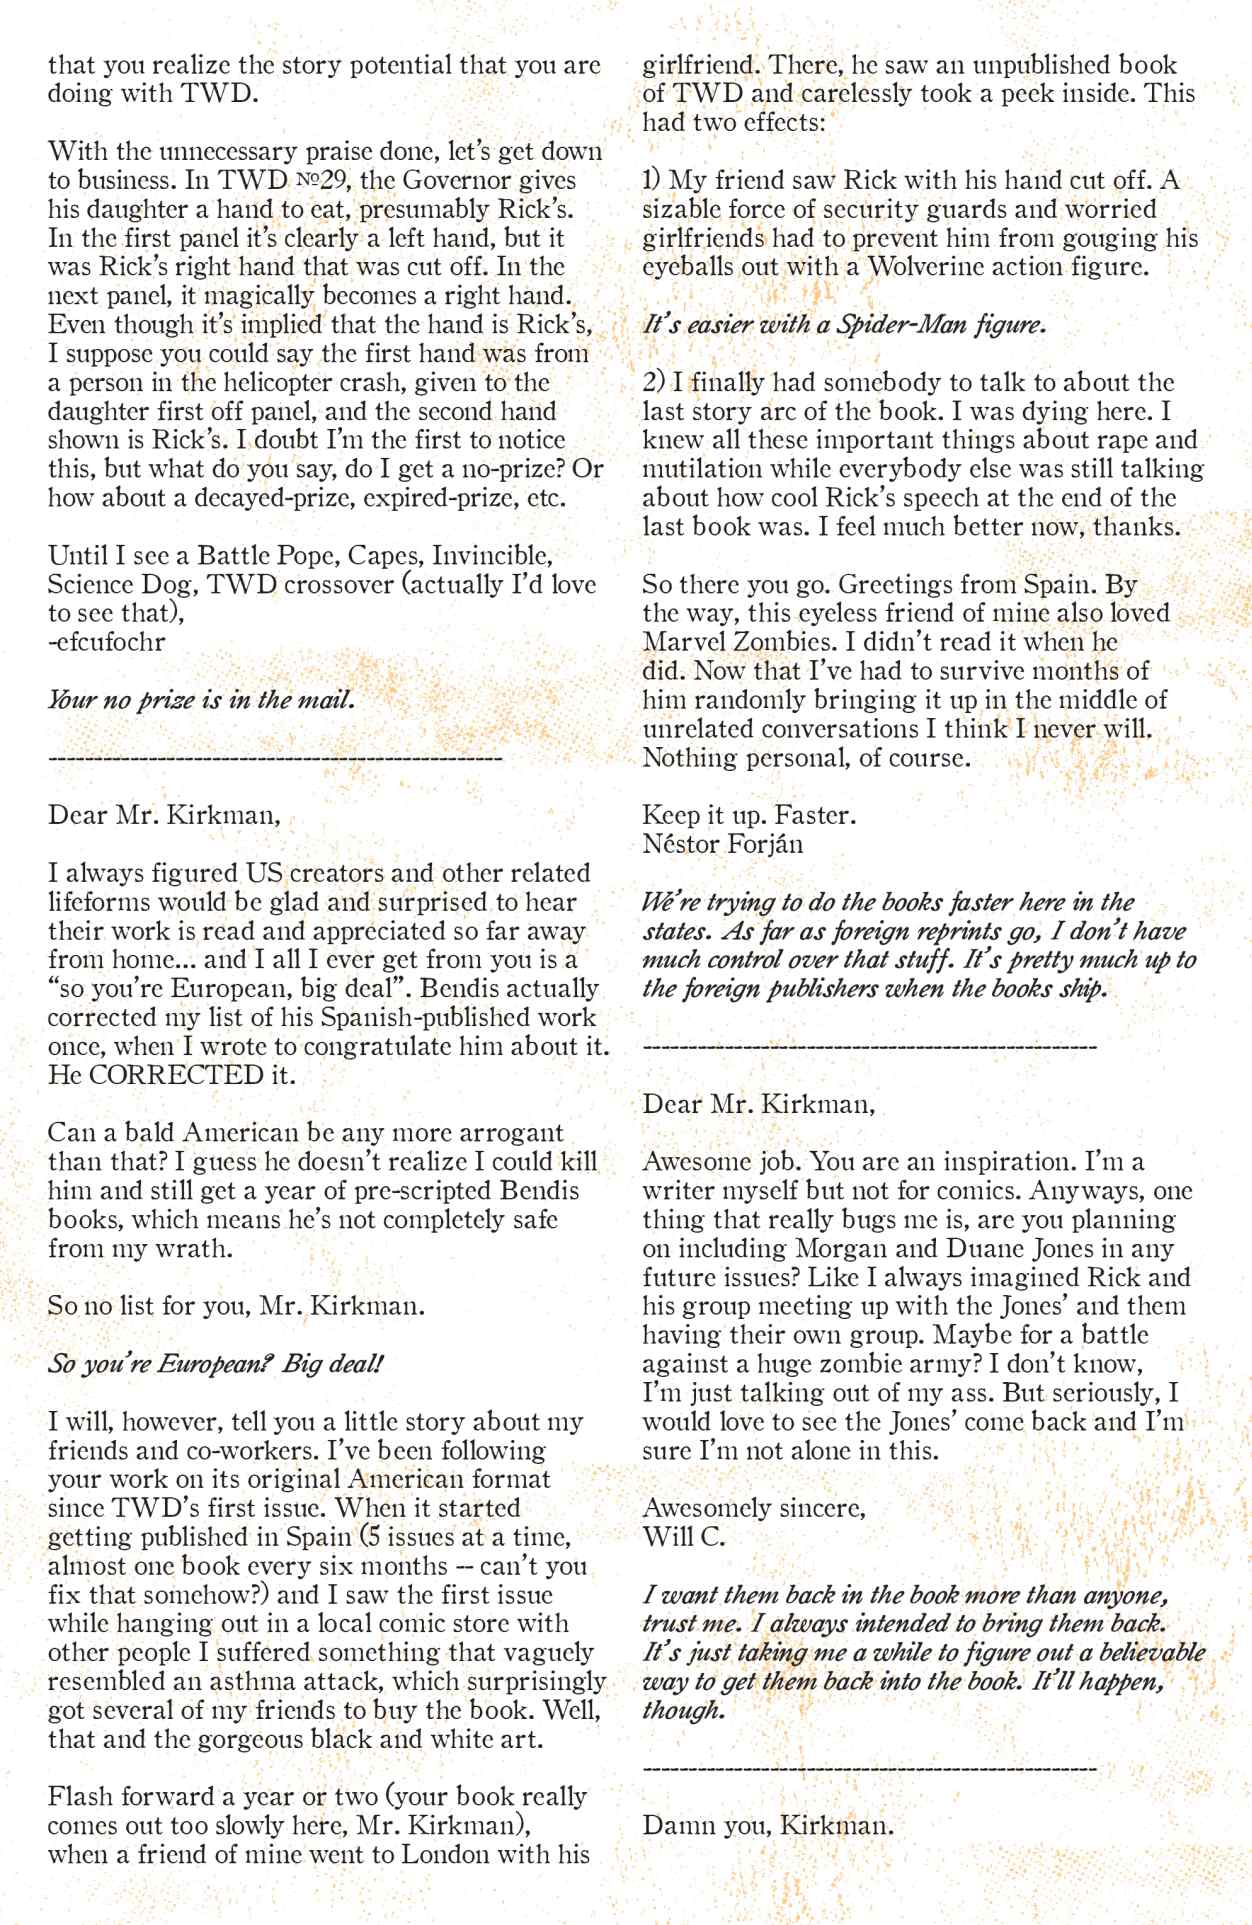 that you realize the story potential that you are
doing with TWD.
With the unnecessary praise done, let's get down
to business. In TWD №29, the Governor gives
his daughter a hand to eat, presumably Rick's.
In the first panel it's clearly a left hand, but it
was Rick's right hand that was cut off. In the
next panel, it magically becomes a right hand.
Even though it's implied that the hand is Rick's,
I suppose you could say the first hand was from
a person in the helicopter crash, given to the
daughter first off panel, and the second hand
shown is Rick's. I doubt I'm the first to notice
this, but what do you say, do I get a no-prize? Or
how about a decayed-prize, expired-prize, etc.
Until I see a Battle Pope, Capes, Invincible,
Science Dog, TWD crossover (actually I'd love
to see that),
-efcufochr
Your no prize is in the mail.
--------------------------------------------------
Dear Mr. Kirkman,
I always figured US creators and other related
lifeforms would be glad and surprised to hear
their work is read and appreciated so far away
from home... and I all I ever get from you is a
“so you're European, big deal”. Bendis actually
corrected my list of his Spanish-published work
once, when I wrote to congratulate him about it.
He CORRECTED it.
Can a bald American be any more arrogant
than that? I guess he doesn't realize I could kill
him and still get a year of pre-scripted Bendis
books, which means he's not completely safe
from my wrath.
So no list for you, Mr. Kirkman.
So you're European? Big deal!
I will, however, tell you a little story about my
friends and co-workers. I've been following
your work on its original American format
since TWD's first issue. When it started
getting published in Spain (5 issues at a time,
almost one book every six months -- can't you
fix that somehow?) and I saw the first issue
while hanging out in a local comic store with
other people I suffered something that vaguely
resembled an asthma attack, which surprisingly
got several of my friends to buy the book. Well,
that and the gorgeous black and white art.
Flash forward a year or two (your book really
comes out too slowly here, Mr. Kirkman),
when a friend of mine went to London with his
girlfriend. There, he saw an unpublished book
of TWD and carelessly took a peek inside. This
had two effects:
1) My friend saw Rick with his hand cut off. A
sizable force of security guards and worried
girlfriends had to prevent him from gouging his
eyeballs out with a Wolverine action figure.
It's easier with a Spider-Man figure.
2) I finally had somebody to talk to about the
last story arc of the book. I was dying here. I
knew all these important things about rape and
mutilation while everybody else was still talking
about how cool Rick's speech at the end of the
last book was. I feel much better now, thanks.
So there you go. Greetings from Spain. By
the way, this eyeless friend of mine also loved
Marvel Zombies. I didn't read it when he
did. Now that I've had to survive months of
him randomly bringing it up in the middle of
unrelated conversations I think I never will.
Nothing personal, of course.
Keep it up. Faster.
Néstor Forján
We're trying to do the books faster here in the
states. As far as foreign reprints go, I don't have
much control over that stuff. It's pretty much up to
the foreign publishers when the books ship.
--------------------------------------------------
Dear Mr. Kirkman,
Awesome job. You are an inspiration. I'm a
writer myself but not for comics. Anyways, one
thing that really bugs me is, are you planning
on including Morgan and Duane Jones in any
future issues? Like I always imagined Rick and
his group meeting up with the Jones' and them
having their own group. Maybe for a battle
against a huge zombie army? I don't know,
I'm just talking out of my ass. But seriously, I
would love to see the Jones' come back and I'm
sure I'm not alone in this.
Awesomely sincere,
Will C.
I want them back in the book more than anyone,
trust me. I always intended to bring them back.
It's just taking me a while to figure out a believable
way to get them back into the book. It'll happen,
though.
--------------------------------------------------
Damn you, Kirkman.